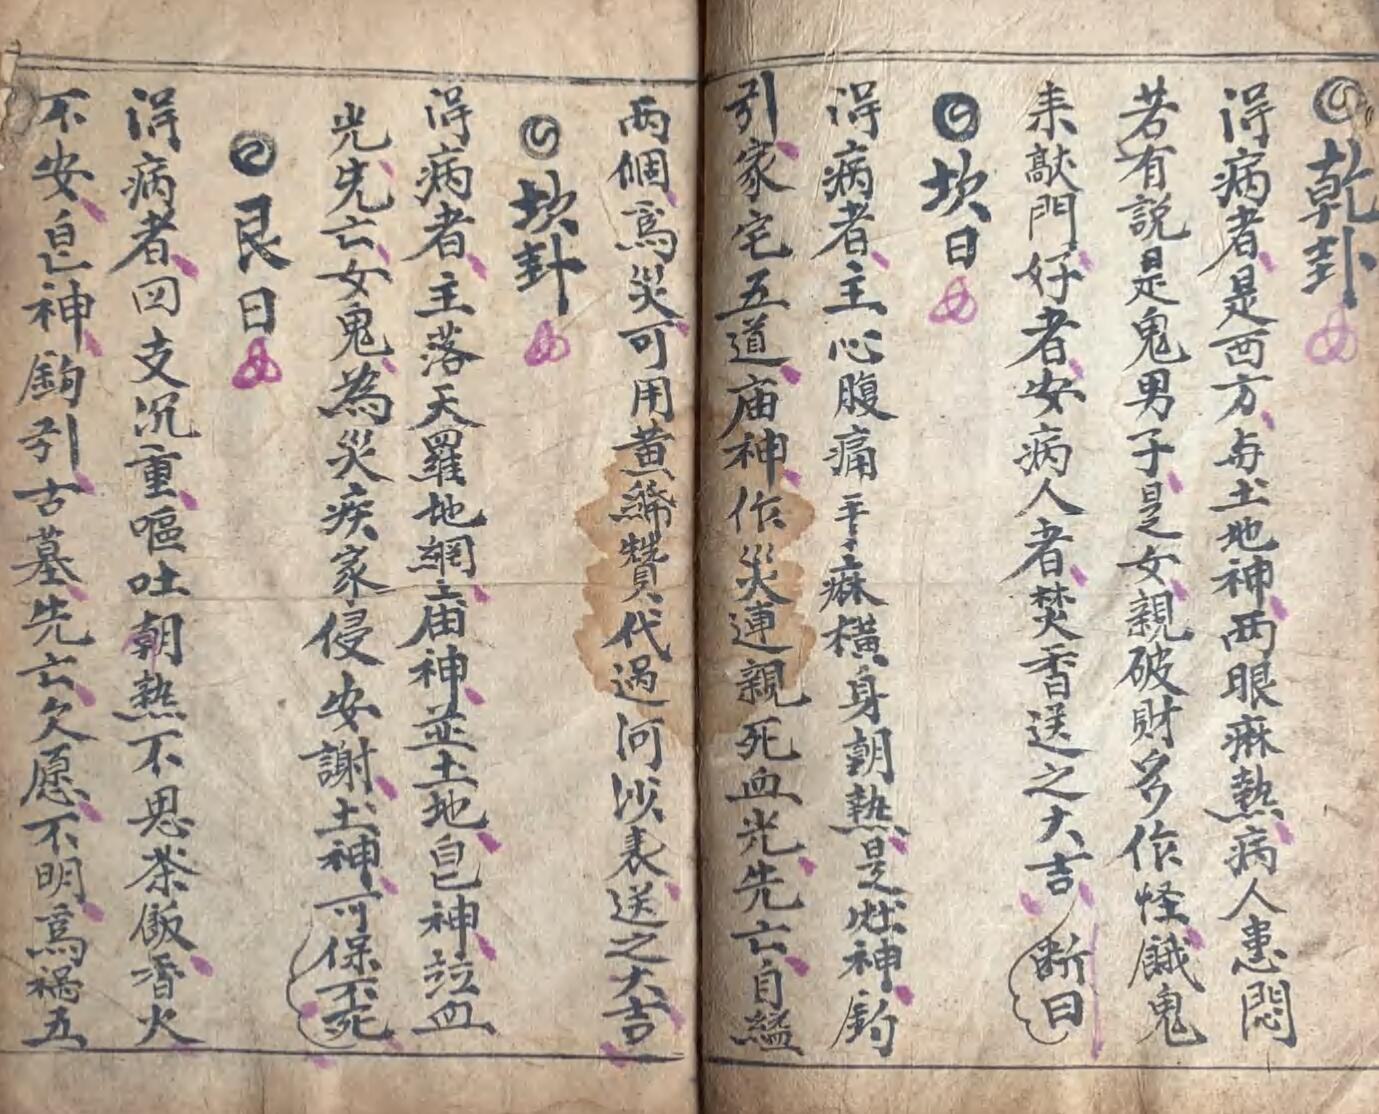 乾卦
淂病者是西方与土地神两眼痳熱病人患悶
若有説是鬼男子是女親破財多作怪餓鬼
来献門好者安病人者焚香送之大吉 断曰
坎日
淂病者主心腹痛平痳横身朝熱是灶神鈎
引家宅五道庙神作災連親死血光先亡自縊
两個為災可用黄代過河沙表送之大吉
坎卦
淂病者主落天羅地網庙神並土地皂神並血
光先亡女鬼為災疾家侵安謝土神可保不死
艮日
淂病者四支沉重嘔吐朝熱不思茶飯香火
不安皂神鈎引古墓先亡欠愿不明為禍五